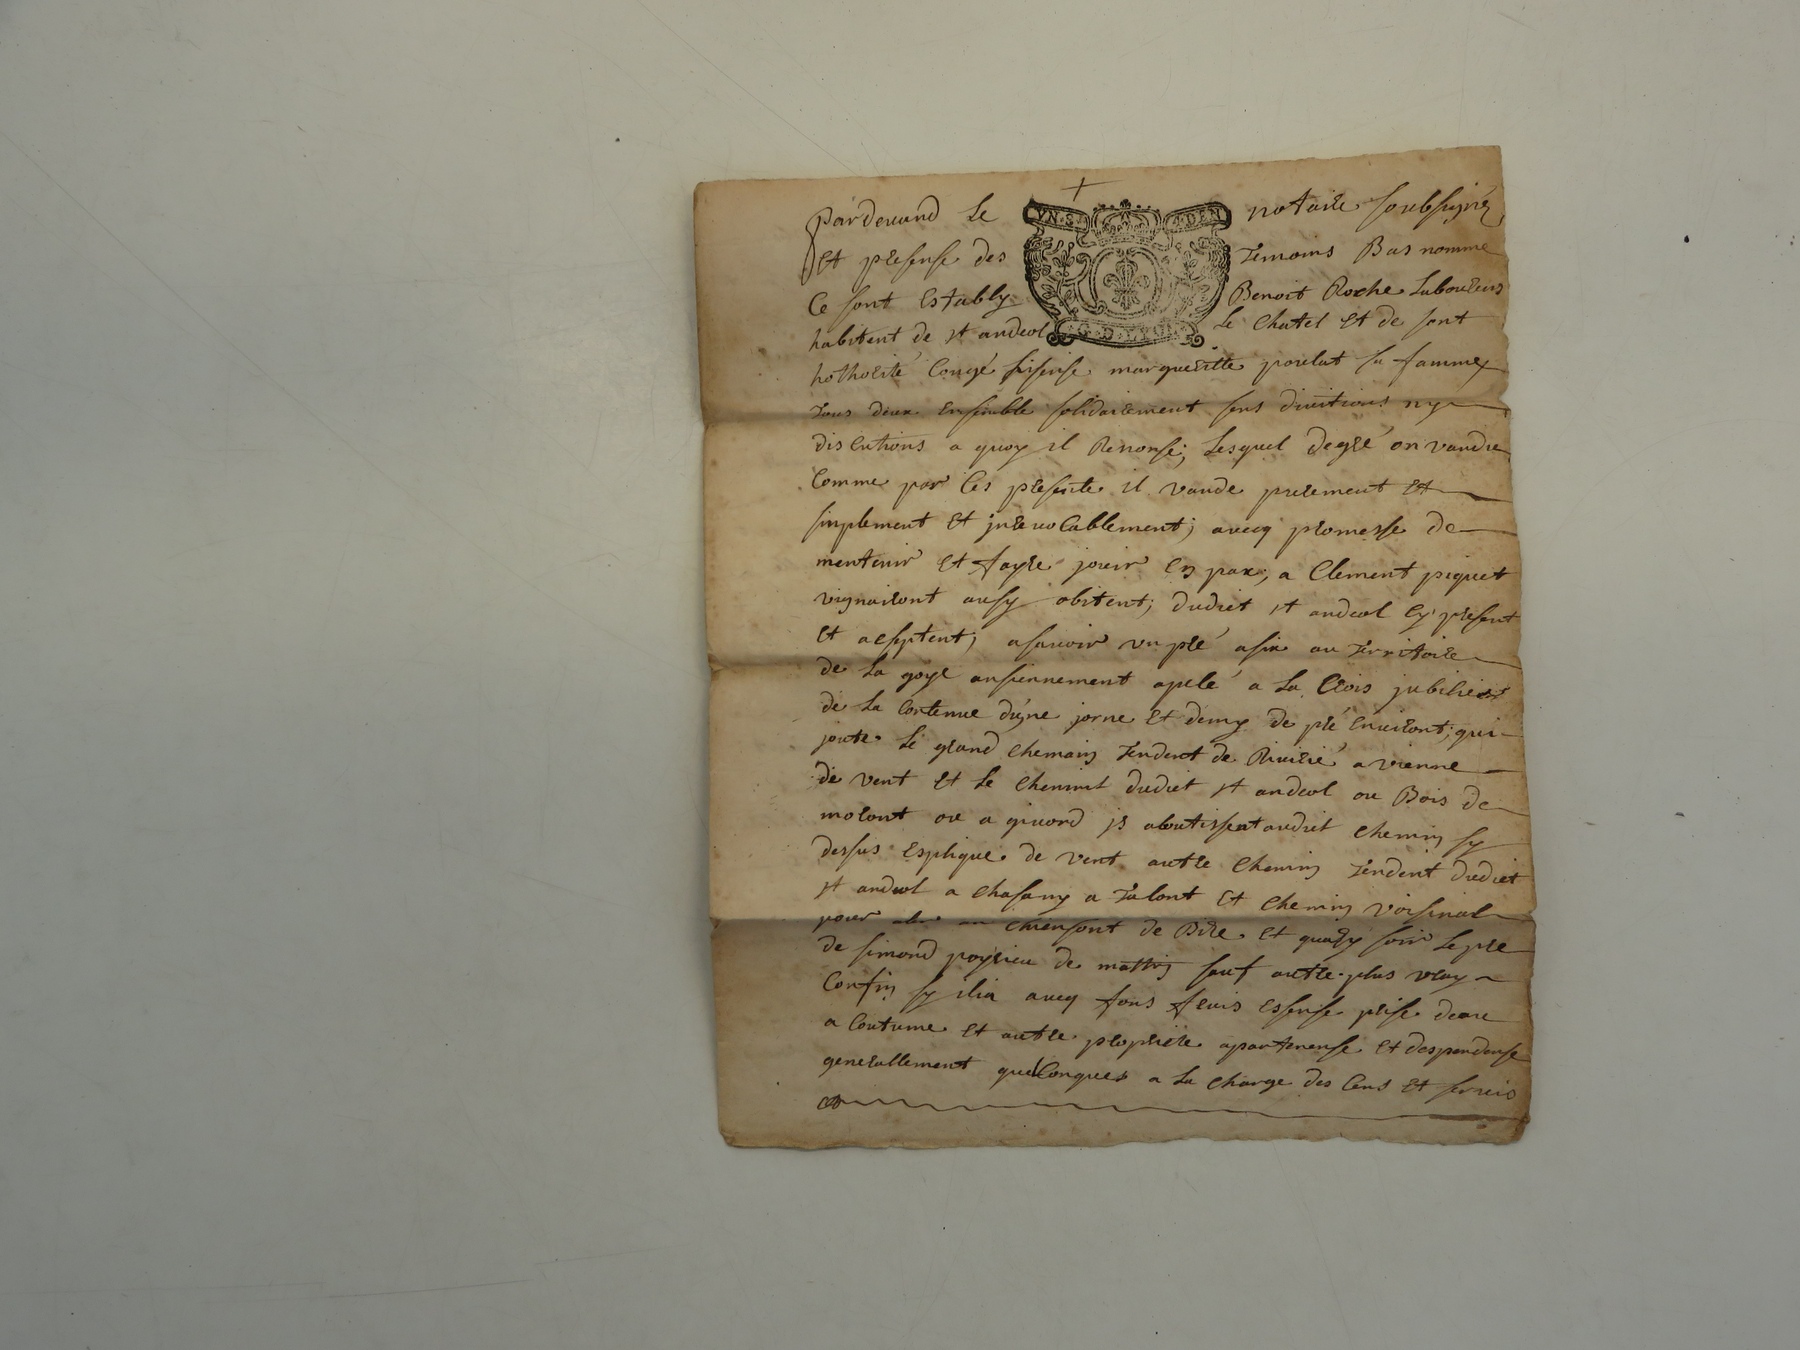 pardevand Le notaire soubsigné,
Et presense des Temoins Bas nomme
Ce sont Estably Benoit Roche Laboureur
habitent de st andeol Le Chatel Et de sont
hothorité Congé marguerite poulat sa famme
Tous deux Ensimble solidairement sens divitions ny
discutions a quoy il Renonse; Lesquel degré on vandu
Comme par Ces presente il vande purement Et
sinplement Et jnrevocablement; avecq promesse de
mentenir Et fayre jouir En pax; a Clement piquet
vignairont ausy abitent; dudict st andeol Cy present
Et aceptent; asavoir un pré asix au Territoire
de La goye ansiennement apelé a La Crois jubilie
de La Contenue d'une jorne Et demy de pré Environt; qui
joute Le grand chemain Tendent de Rivirié a vienne
de vent Et Le Chemint dudict st andeol ou Bois de
molont ou a givord js aboutissent audict Chemin sy
dessus Esplique de vent autre Chemin Tendent dudict
st andeol a Chasany a Talont Et Chemin voisinal
pour de Bise Et quasy soir Le pre
de simond poyrieu de mattin sauf autre plus vray
Confin sy ilia avecq fons fruis Essense prise deaue
a Coutume Et autre propriete apartenense Et despendense
generallement quelConques a La Charge des Cens Et servis
VN·S· 4·DEN
G·D·LYON